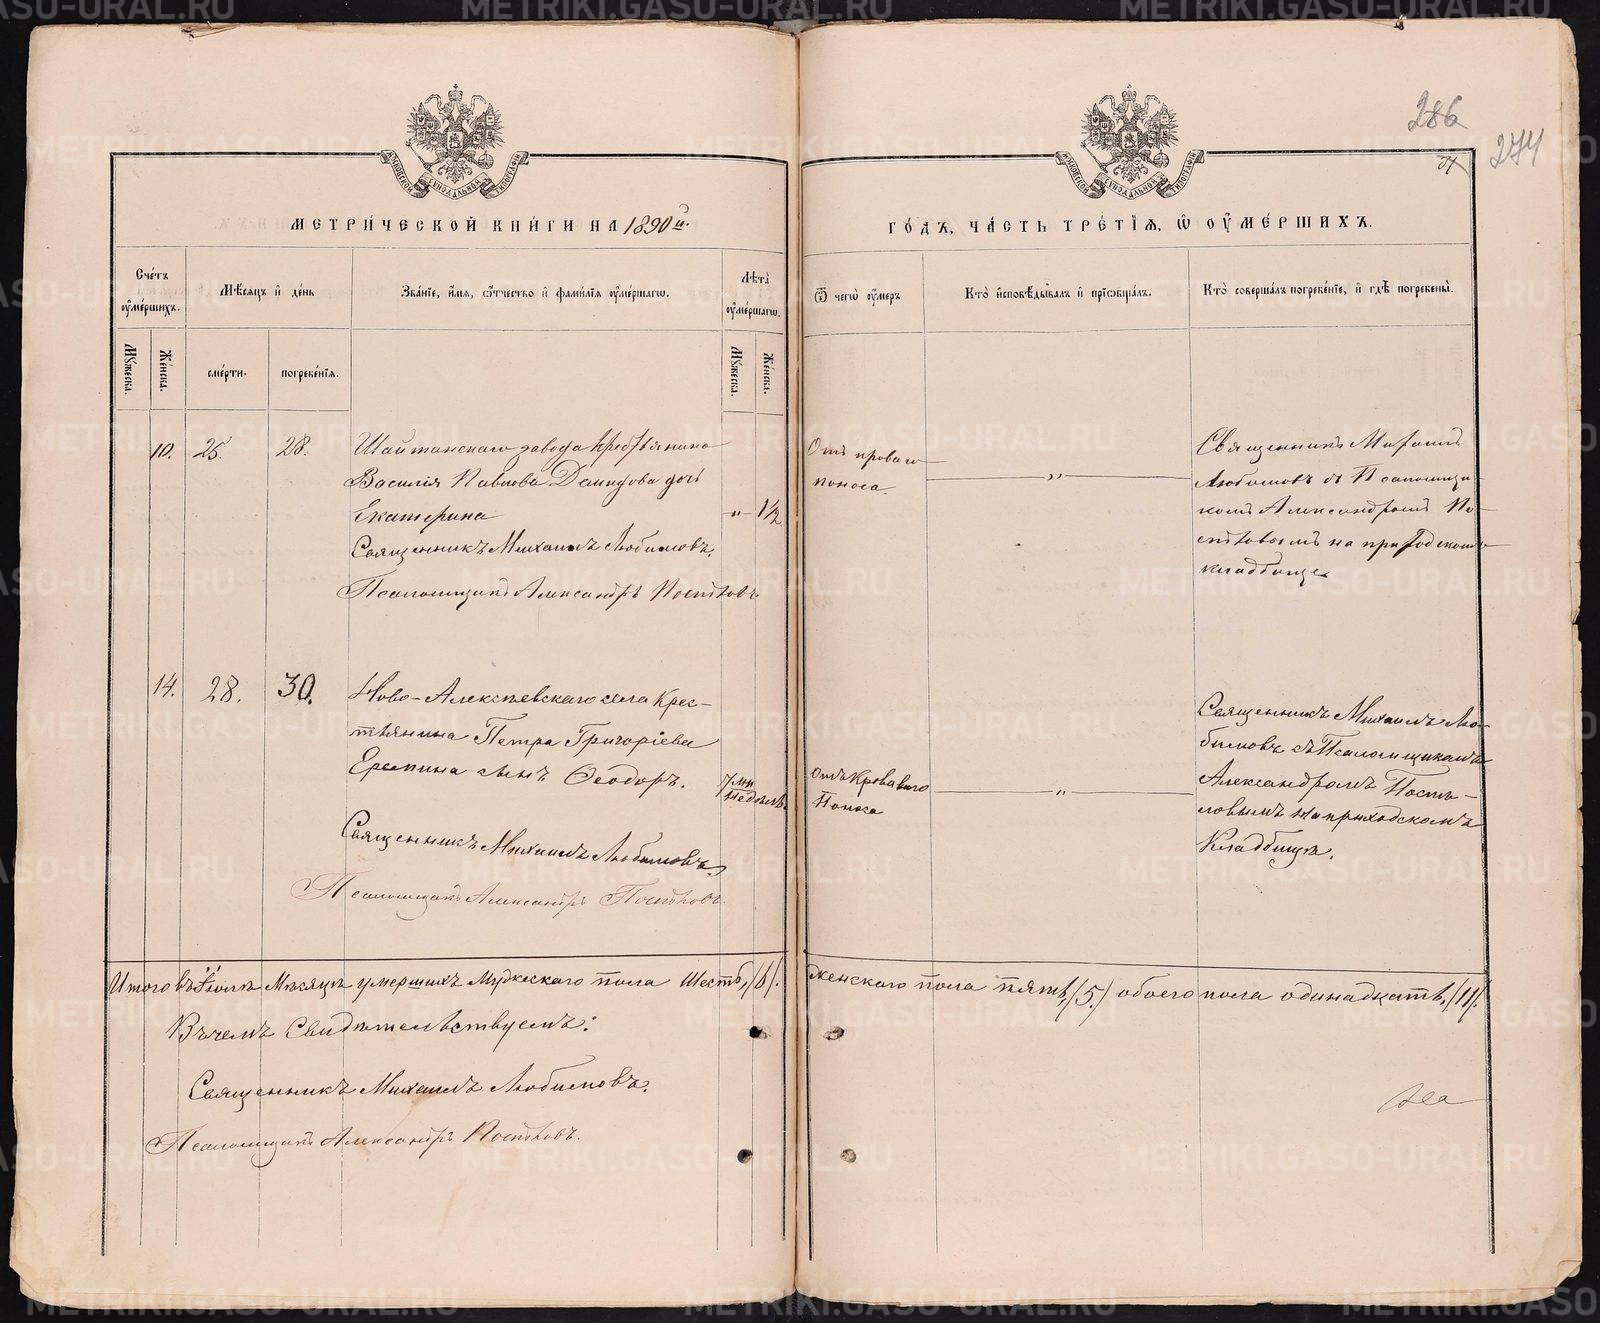 286
274
МЕТРИ́ЧЕСКОЙ КНИ́ГИ НА 1890й.
ГО́ДЪ, ЧА́СТЬ ТРЕ́ТІЯ, Ѿ ОУ҆МЕ́РШИХЪ.
Сче́тъ оу҆ме́ршихъ.
Мꙋ́жеска.
Же́нска.
Мѣ́сяцъ и҆ де́нь
сме́рти.
погребе́нїя.
Зва́нїе, и҆́мя, ѻ҆́тчество и҆ фами́лїя оу҆ме́ршагѡ.
Лѣ́та оу҆ме́ршагѡ.
Мꙋ́жеска.
Же́нска.
Ѿ чегѡ̀ оу҆́меръ
Кто̀ и҆сповѣ́дывалъ и҆ прїѡбща́лъ.
Кто̀ соверша́лъ погребе́нїе, и҆ гдѣ̀ погребены̀.
10. 25. 28.
Шайтанскаго завода крестьянина
Василія Павлова Демидова дочь
Екатерина
„ 1½
Священникъ Михаилъ Любимовъ.
Псаломщикъ Александръ Постѣловъ
Отъ кроваго
поноса.
„
Священникъ Михаилъ
Любимовъ съ Псаломщи-
комъ Александромъ По-
стѣловымъ на приходскомъ
кладбище
14. 28. 30.
Ново-Алексѣевскаго села Крес-
тьянина Петра Григоріева
Еремина сынъ Ѳеодоръ.
7ми
недѣль.
Священникъ Михаилъ Любимовъ.
Псаломщикъ Александръ Постѣловъ
Отъ Кроваваго
Поноса
„
Священникъ Михаилъ Лю-
бимовъ съ Псаломщикомъ
Александромъ Постѣ-
ловымъ на приходскомъ
Кладбищѣ.
Итого въ Іюлѣ Мѣсяцѣ умершихъ Мужескаго пола Шесть, /6/. женскаго пола пять, /5/ обоего пола одинадкать, /11/.
Въ чемъ Свидѣтельствуемъ:
Священникъ Михаилъ Любимовъ.
Псаломщикъ Александръ Постѣловъ.